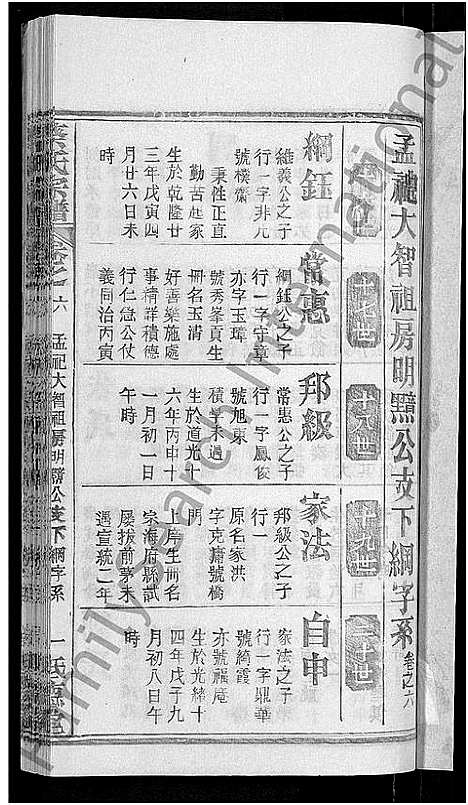 孟祀大智祖房明黟公支下綱字系 卷之六
十八世
十九世
二十世
綱鈺
維義公之子
行一字非凡
號樸齋
秉性正直
勤苦起家
生於乾隆廿
三年戊寅四
月廿六日未
時
常惠
綱鈺公之子
行一字守章
亦字玉璋
號秀峯貢生
冊名玉清
好善樂施處
事精詳積德
行仁急公仗
義同治丙寅
邦級
常惠公之子
行一字鳳俊
號旭東
積學未遇
生於道光十
六年丙申十
一月初一日
午時
家法
邦級公之子
行一
原名家洪
字克庸號橋
門
上庠生冊名
宗海府縣試
屢拔前茅未
遇宣統二年
自中
家法之子
行一字鼎華
號綺霞
亦號福庵
生於光緒十
四年戊子九
月初八日午
時
氏宗譜
卷之六
孟祀大智祖房明黟公支下綱字系
一
Family Search International